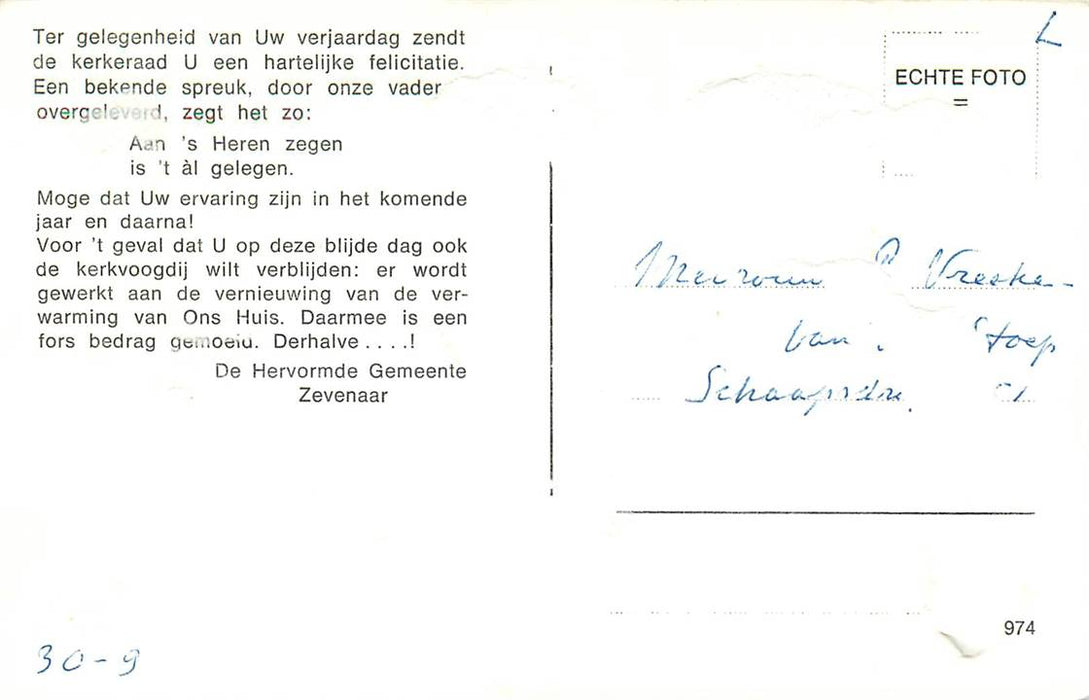 Ter gelegenheid van Uw verjaardag zendt
de kerkeraad U een hartelijke felicitatie.
Een bekende spreuk, door onze vader
overgeleverd, zegt het zo:
Aan 's Heren zegen
is 't àl gelegen.
Moge dat Uw ervaring zijn in het komende
jaar en daarna!
Voor 't geval dat U op deze blijde dag ook
de kerkvoogdij wilt verblijden: er wordt
gewerkt aan de vernieuwing van de ver-
warming van Ons Huis. Daarmee is een
fors bedrag gemoeid. Derhalve . . . .!
De Hervormde Gemeente
Zevenaar
30-9
L
ECHTE FOTO
=
Mevrouw Vreske-
van
974